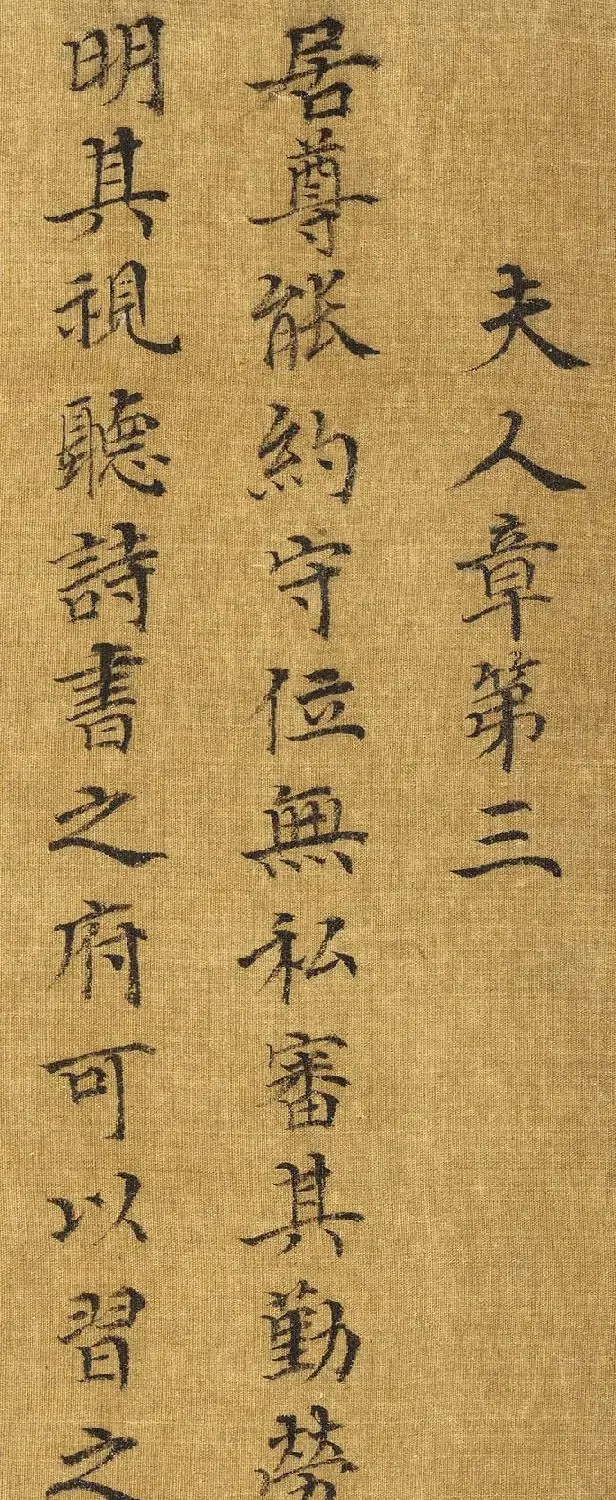 夫人章第三
居尊能約守位無私審其勤勞
明其視聽詩書之府可以習之